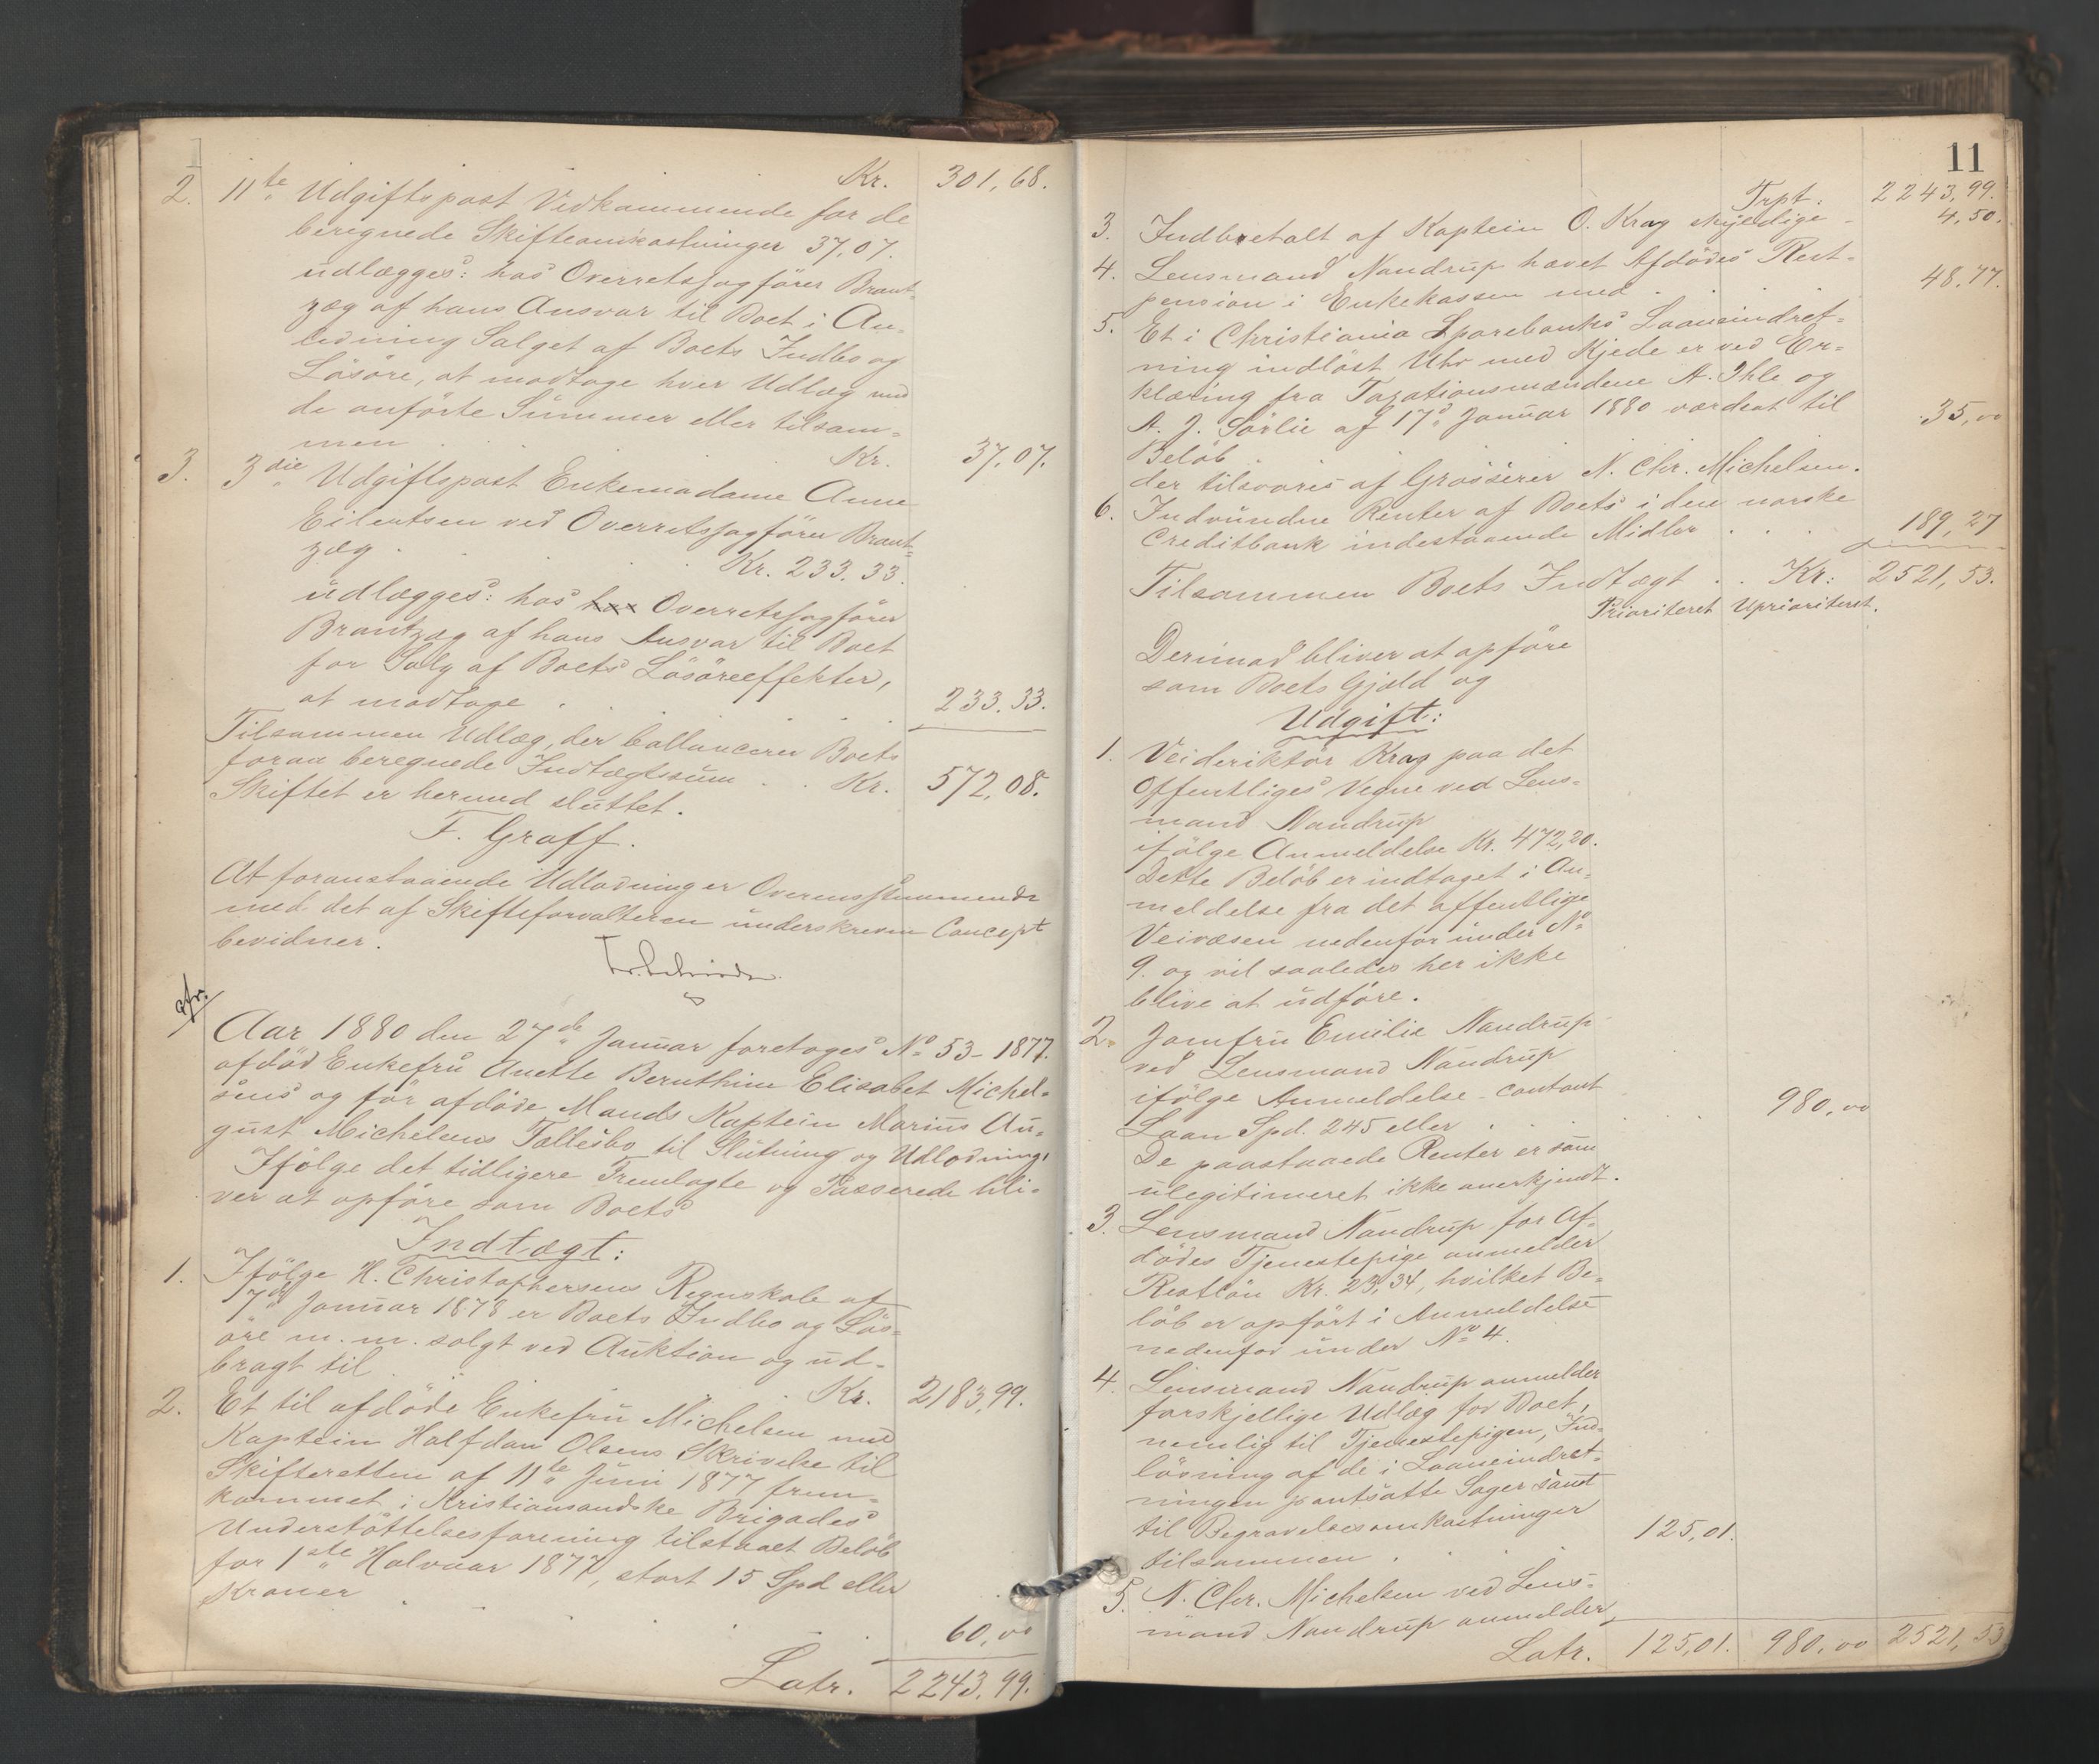 Kr. 301,68.
2. 11te Udgiftspost Vedkommende for de
beregnede Skifteomkostninger 37,07.
udlægges: hos Overretssagfører Brant-
zæg af hans Ansvar til Boet i An-
ledning Salget af Boets Indbo og
Løsøre, at modtage hver Udlæg med
de anførte Summer eller tilsam-
men . . . Kr. 37,07.
3. 3die Udgiftspost Enkemadame Anne
Eilertsen ved Overretssagfører Brant-
zæg . . . Kr. 233.33.
udlægges: hos hos Overretssagfører
Brantzæg af hans Ansvar til Boet
for Salg af Boets Løsøreeffekter,
at modtage . . . 233.33.
Tilsammen Udlæg, der ballancerer Boets
foran beregnede Indtægtssum . . Kr. 572,08.
Skiftet er hermed sluttet.
F. Graff.
At foranstaaende Udlodning er Overensstemmende
med det af Skifteforvalteren underskrevne Concept
bevidner.
cfr.
Aar 1880 den 27de Januar foretoges No 53-1877.
afdød Enkefru Anette Bernthine Elisabet Michel-
sens og før afdøde Mands Kaptein Marius Au-
gust Michelsens Fællesbo til Slutning og Udlodning.
Ifølge det tidligere Fremlagte og Passerede bli-
ver at opføre som Boets
Indtægt:
1. Ifølge H. Christophersens Regnskab af
7de Januar 1878 er Boets Indbo og Løs-
øre m. m. solgt ved Auktion og ud-
bragt til . . . Kr. 2183,99.
2. Et til afdøde Enkefru Michelsen med
Kaptein Halfdan Olsens Skrivelse til
Skifteretten af 11te Juni 1877 frem-
kommet i Kristiansandske Brigades
Understøttelsesforening tilstaaet Beløb
for 1ste Halvaar 1877, stort 15 Spd eller
Kroner . . . 60,00
Latr. 2243,99.
11
Trpt. 2243,99.
3. Indbetalt af Kaptein O. Krag skyldige - 4,50.
4. Lensmand Nandrup hævet Afdødes Rest-
pension i Enkekassen med . . . 48,77.
5. Et i Christiania Sparebanks Laaneindret-
ning indløst Uhr med Kjede er ved Er-
klæring fra Taxationsmændene A. Ihle og
A. J. Sørlie af 17d Januar 1880 værdsat til
Beløb . . . 35,00
der tilsvares af Grosserer N. Chr. Michelsen.
6. Indvundne Renter af Boets i den norske
Creditbank indestaaende Midler . . . 189,27
Tilsammen Boets Indtægt . . Kr: 2521,53.
Prioriteret Uprioriteret.
Derimod bliver at opføre
som Boets Gjæld og
Udgift:
1. Veidirektør Krag paa det
Offentliges Vegne ved Lens-
mand Nandrup
ifølge Anmeldelse Kr. 472,20.
Dette Beløb er indtaget i An-
meldelse fra det offentlige
Veivæsen nedenfor under No
9. og vil saaledes her ikke
blive at udføre.
2. Jomfru Emilie Nandrup
ved Lensmand Nandrup
ifølge Anmeldelse - contant
Laan Spd. 245 eller . . . 980,00
De paastaaede Renter er som
ulegitimeret ikke anerkjendt.
3. Lensmand Nandrup for Af-
dødes Tjenestepige anmelder
Restløn Kr. 23,34, hvilket Be-
løb er opført i Anmeldelse
nedenfor under No 4.
4. Lensmand Nandrup anmelder
forskjellige Udlæg for Boet,
nemlig til Tjenestepigen, Ind-
løsning af de i Laaneindret-
ningen pantsatte Sager samt
til Begravelsesomkostninger
tilsammen . . . 125,01.
5. N. Chr. Michelsen ved Lens-
mand Nandrup anmelder,
Latr. 125,01. 980,00 2521,53